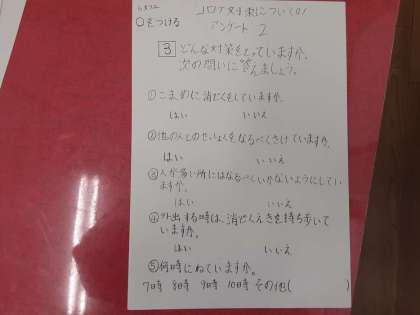 ○をつける
コロナ対策についての
アンケート 2
3 どんな対策をとっていますか。
次の問いに答えましょう。
①こまめに消どくをしていますか。
はい いいえ
②他の人とのせっしょくをなるべくさけていますか。
はい いいえ
③人が多い所にはなるべくいかないようにしてい
ますか。
はい いいえ
④外出する時は、消どくえきを持ち歩いて
いますか。
はい いいえ
⑤何時にねていますか。
7時 8時 9時 10時 その他( )